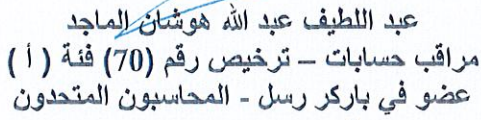 عبد اللطيف عبد الله هوشان الماجد
مراقب حسابات – ترخيص رقم (70) فئة ( أ )
عضو في باركر رسل - المحاسبون المتحدون